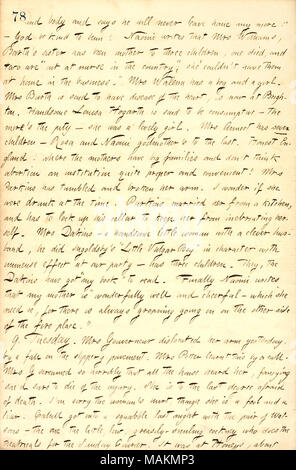 78
kind body and says he will never leave home any more!
— God be kind to him! Naomi writes that Mrs Williams,
Barth's sister has been mother to three children, one died, and
two are "out at nurse in the country," she couldn't have them
at home in the business." Mrs has a boy and a girl.
Mrs Barth is said to have disease of the heart, is now at Brigh-
ton. Handsome Louisa Hogarth is said to be enceinte — the
more's the pity — she was a lovely girl. Mrs has seven
children — Rosa and Naomi godmother's to the last. Honest Eng-
land! where the mothers have big families and don't think
abortion an institution quite proper and convenient! Mrs
Perkins has tumbled and broken her arm. I wonder if she
were drunk at the time. Perkins married her from a kitchen,
and has to lock up his cellar to keep her from inebriating her-
self. Mrs Dakins — a handsome little woman with a clever hus-
band, he did Ingoldsby's "Little Vulgar Boy" in character with
immense effect at our party — has three children. They, the
Dakins has got "my book" to read. Finally Naomi writes
that my mother is wonderfully well and cheerful — which she
need is, for there is always "groaning going on on the other side
of the fire place."
9. Tuesday. Mrs Gouverneur dislocated her arm yesterday
by a fall on the slippery pavement. Mrs Potter learnt this by a call.
Mrs G screamed so horribly that all the house heard her, fancying
she'd to die of the injury. She is to the last degree afraid
of death. I'm sorry the woman's hurt though she is a fool and a
liar. Cahill got into a squabble last night with the pair of Wat-
sons — the one the little liar, greasily-smiling cockney who does the
theatricals for the Sunday Courier. It was at Honey's, about